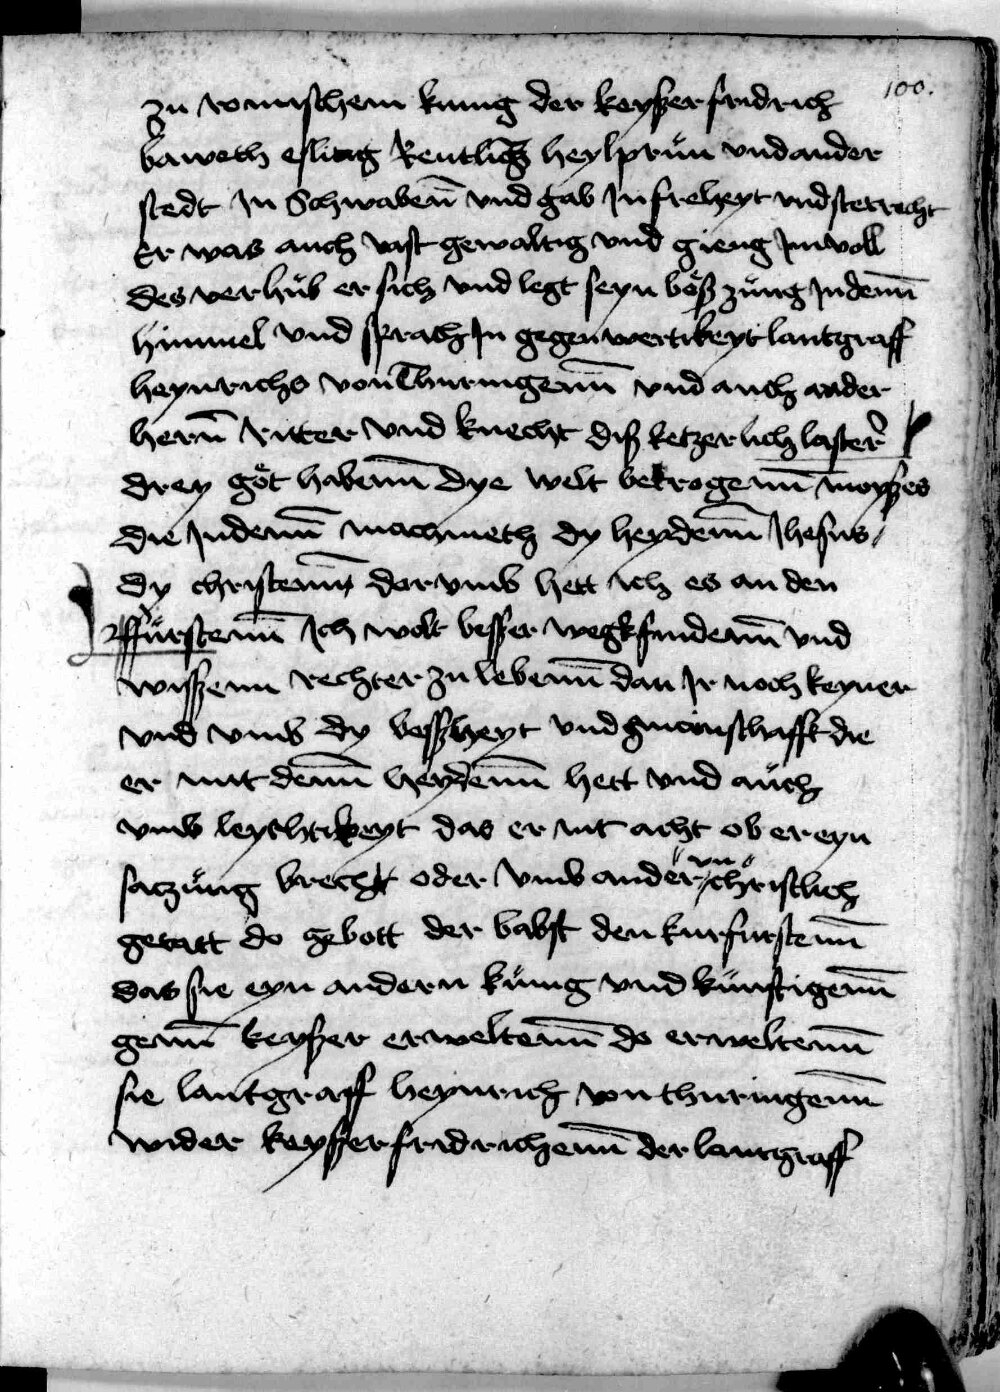 100.
zu romischem kunig der keyßer fridrich
baweth esling Reutling heylprün und ander
stedt In Schwabenn und gab In freheyt und sterrecht
Er was auch vast gewaltig und gieng Im woll
des verhüb er sich und legt seyn böß züng In denn
himmel und sprach In gegenwertikeyt lantgraff
heynrichs von Thuringenn und auch ander
hern Ritter und knecht diß ketzerlich laster
drey göt habenn dye welt betrogenn moyßes
die Judenn machmeth dy heydenn Jhesus
dy christenn dorumb hett ich es an den
fürstenn Ich wolt besser weg finden und
wissenn rechter zu lebenn dan Ir noch keyner
und umb dy boßheyt und gmeinschafft die
er mit denn heydenn hett und auch
umb leychtikeyt das er nit acht ob er eyn
satzüng brecht oder umb ander un christlich
getatt do gebott der babst den kurfurstenn
das sie eyn andern künig und künftigenn
keyßer erweltenn do erweltenn
sie lantgraff heynrich von thuringenn
wider keyßer fridrichenn der lantgraff